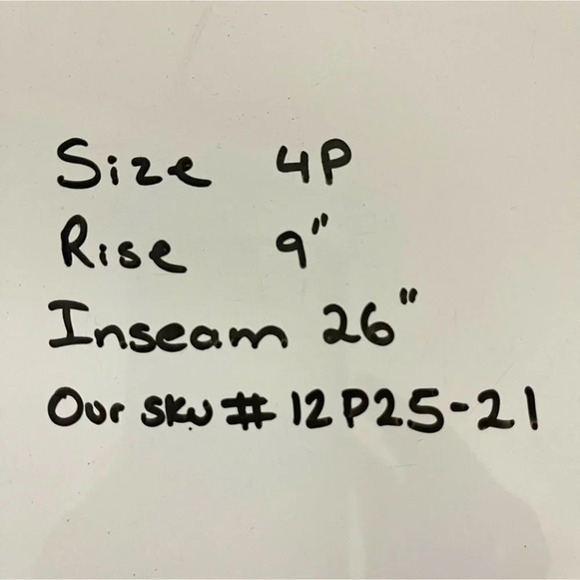 Size 4P
Rise 9"
Inseam 26"
Our sku # 12P25-21